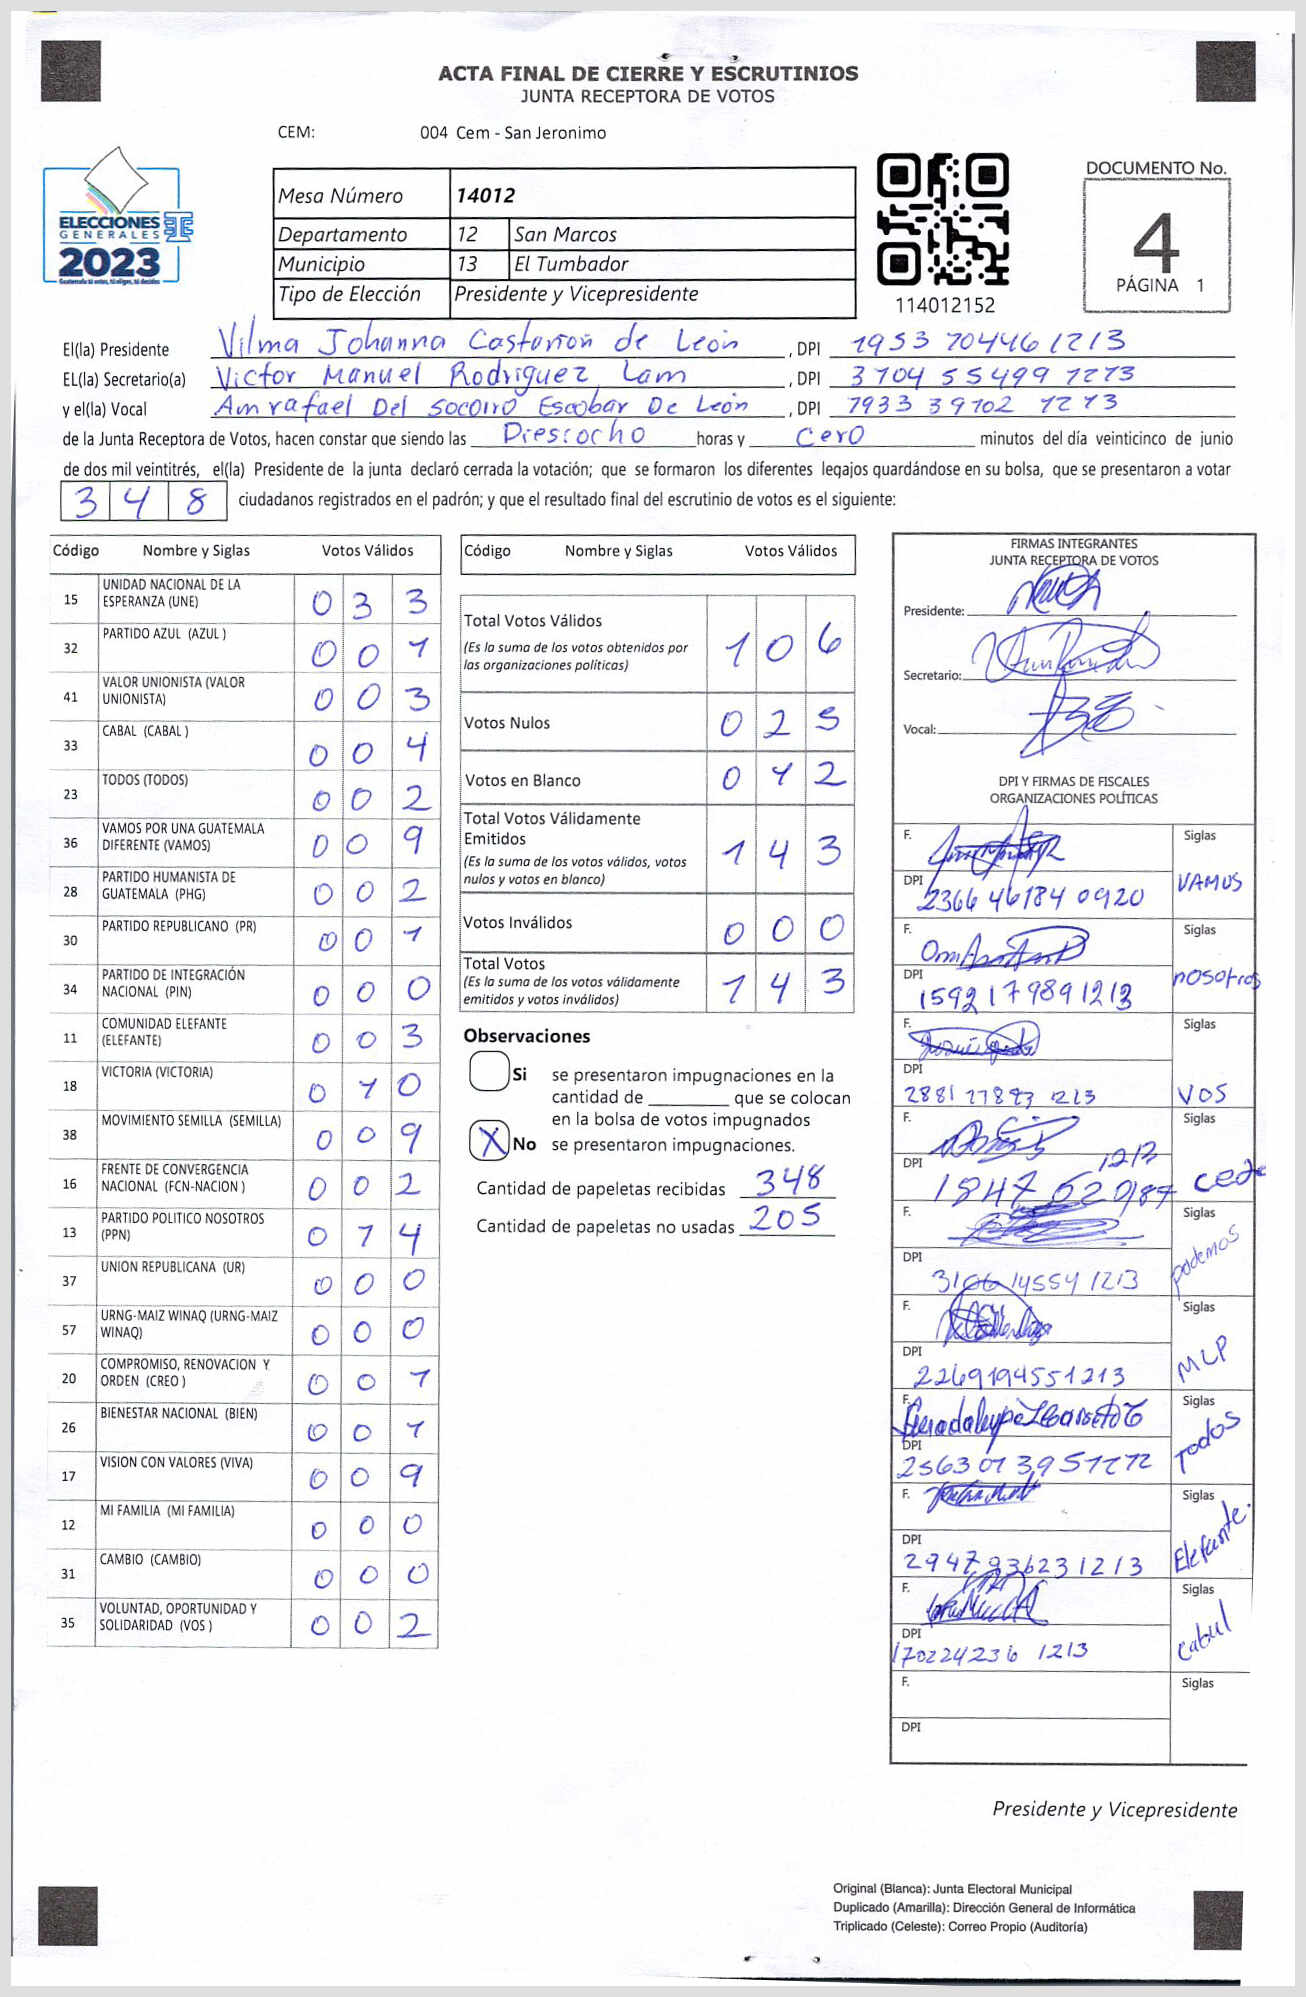 ACTA FINAL DE CIERRE Y ESCRUTINIOS
JUNTA RECEPTORA DE VOTOS
CEM: 004 Cem - San Jeronimo
ELECCIONES
GENERALES
2023
Guatemala tú votas, tú eliges, tú decides
Mesa Número 14012
Departamento 12 San Marcos
Municipio 13 El Tumbador
Tipo de Elección Presidente y Vicepresidente
114012152
DOCUMENTO No.
4
PÁGINA 1
El(la) Presidente Vilma Johanna Castañon de León , DPI 1953 70446 1213
EL(la) Secretario(a) Victor Manuel Rodriguez Lam , DPI 3704 55499 1213
y el(la) Vocal Amrafael Del Socorro Escobar De León , DPI 1933 39702 1213
de la Junta Receptora de Votos, hacen constar que siendo las Diesiocho horas y cero minutos del día veinticinco de junio
de dos mil veintitrés, el(la) Presidente de la junta declaró cerrada la votación; que se formaron los diferentes legajos quardándose en su bolsa, que se presentaron a votar
348 ciudadanos registrados en el padrón; y que el resultado final del escrutinio de votos es el siguiente:
Código Nombre y Siglas Votos Válidos
15 UNIDAD NACIONAL DE LA ESPERANZA (UNE) 0 3 3
32 PARTIDO AZUL (AZUL ) 0 0 1
41 VALOR UNIONISTA (VALOR UNIONISTA) 0 0 3
33 CABAL (CABAL ) 0 0 4
23 TODOS (TODOS) 0 0 2
36 VAMOS POR UNA GUATEMALA DIFERENTE (VAMOS) 0 0 9
28 PARTIDO HUMANISTA DE GUATEMALA (PHG) 0 0 2
30 PARTIDO REPUBLICANO (PR) 0 0 1
34 PARTIDO DE INTEGRACIÓN NACIONAL (PIN) 0 0 0
11 COMUNIDAD ELEFANTE (ELEFANTE) 0 0 3
18 VICTORIA (VICTORIA) 0 1 0
38 MOVIMIENTO SEMILLA (SEMILLA) 0 0 9
16 FRENTE DE CONVERGENCIA NACIONAL (FCN-NACION ) 0 0 2
13 PARTIDO POLITICO NOSOTROS (PPN) 0 1 4
37 UNION REPUBLICANA (UR) 0 0 0
57 URNG-MAIZ WINAQ (URNG-MAIZ WINAQ) 0 0 0
20 COMPROMISO, RENOVACION Y ORDEN (CREO ) 0 0 1
26 BIENESTAR NACIONAL (BIEN) 0 0 1
17 VISION CON VALORES (VIVA) 0 0 9
12 MI FAMILIA (MI FAMILIA) 0 0 0
31 CAMBIO (CAMBIO) 0 0 0
35 VOLUNTAD, OPORTUNIDAD Y SOLIDARIDAD (VOS ) 0 0 2
Código Nombre y Siglas Votos Válidos
Total Votos Válidos 1 0 6
(Es la suma de los votos obtenidos por
las organizaciones políticas)
Votos Nulos 0 2 5
Votos en Blanco 0 1 2
Total Votos Válidamente
Emitidos 1 4 3
(Es la suma de los votos válidos, votos
nulos y votos en blanco)
Votos Inválidos 0 0 0
Total Votos 1 4 3
(Es la suma de los votos válidamente
emitidos y votos inválidos)
Observaciones
Si se presentaron impugnaciones en la
cantidad de ________ que se colocan
en la bolsa de votos impugnados
X No se presentaron impugnaciones.
Cantidad de papeletas recibidas 348
Cantidad de papeletas no usadas 205
FIRMAS INTEGRANTES
JUNTA RECEPTORA DE VOTOS
Presidente:
Secretario:
Vocal:
DPI Y FIRMAS DE FISCALES
ORGANIZACIONES POLÍTICAS
F. Siglas
DPI 2366 46184 0920 VAMOS
F. Siglas
DPI 1592 17989 1213 nosotros
F. Siglas
DPI 2881 77893 1213 VOS
F. Siglas
DPI 1213
F. Siglas
DPI 3106 14554 1213 podemos
F. Siglas
DPI 2269194551213 MLP
F. Siglas
DPI Todos
F. Siglas
DPI 2947 936231213 Elefante.
F. Siglas
DPI 170224236 1213 cabal
F. Siglas
DPI
Presidente y Vicepresidente
Original (Blanca): Junta Electoral Municipal
Duplicado (Amarilla): Dirección General de Informática
Triplicado (Celeste): Correo Propio (Auditoría)